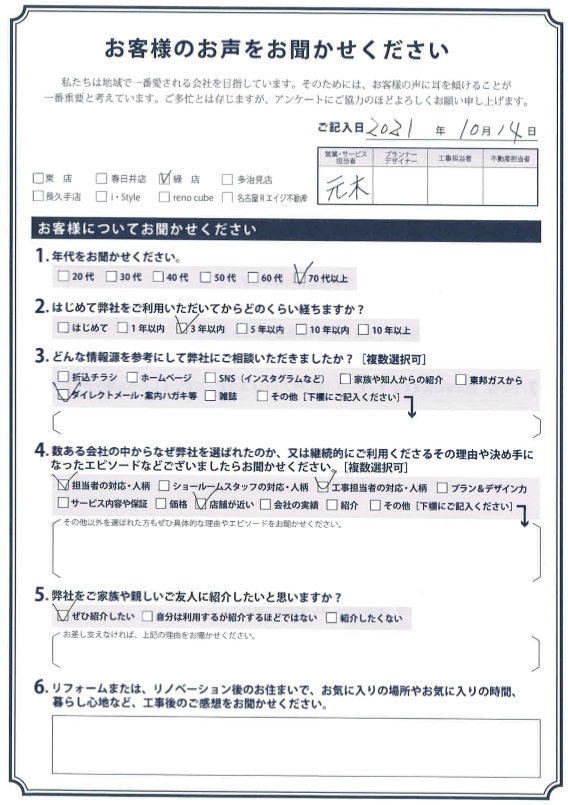 お客様のお声をお聞かせください
私たちは地域で一番愛される会社を目指しています。そのためには、お客様の声に耳を傾けることが
一番重要と考えています。ご多忙とは存じますが、アンケートにご協力のほどよろしくお願い申し上げます。
ご記入日 2021 年 10月 14日
営業・サービス担当者 プランナーデザイナー 工事担当者 不動産担当者
元木
□東 店 □春日井店 ☑緑 店 □多治見店
□長久手店 □i・Style □reno cube □名古屋Rエイジ不動産
お客様についてお聞かせください
1. 年代をお聞かせください。
□20代 □30代 □40代 □50代 □60代 ☑70代以上
2. はじめて弊社をご利用いただいてからどのくらい経ちますか？
□はじめて □1年以内 ☑3年以内 □5年以内 □10年以内 □10年以上
3. どんな情報源を参考にして弊社にご相談いただきましたか？［複数選択可］
□折込チラシ □ホームページ □SNS（インスタグラムなど） □家族や知人からの紹介 □東邦ガスから
☑ダイレクトメール・案内ハガキ等 □雑誌 □その他［下欄にご記入ください］
4. 数ある会社の中からなぜ弊社を選ばれたのか、又は継続的にご利用くださるその理由や決め手に
なったエピソードなどございましたらお聞かせください。［複数選択可］
☑担当者の対応・人柄 □ショールームスタッフの対応・人柄 ☑工事担当者の対応・人柄 □プラン＆デザイン力
□サービス内容や保証 □価格 ☑店舗が近い □会社の実績 □紹介 □その他［下欄にご記入ください］
その他以外を選ばれた方もぜひ具体的な理由やエピソードをお聞かせください。
5. 弊社をご家族や親しいご友人に紹介したいと思いますか？
☑ぜひ紹介したい □自分は利用するが紹介するほどではない □紹介したくない
お差し支えなければ、上記の理由をお聞かせください。
6. リフォームまたは、リノベーション後のお住まいで、お気に入りの場所やお気に入りの時間、
暮らし心地など、工事後のご感想をお聞かせください。